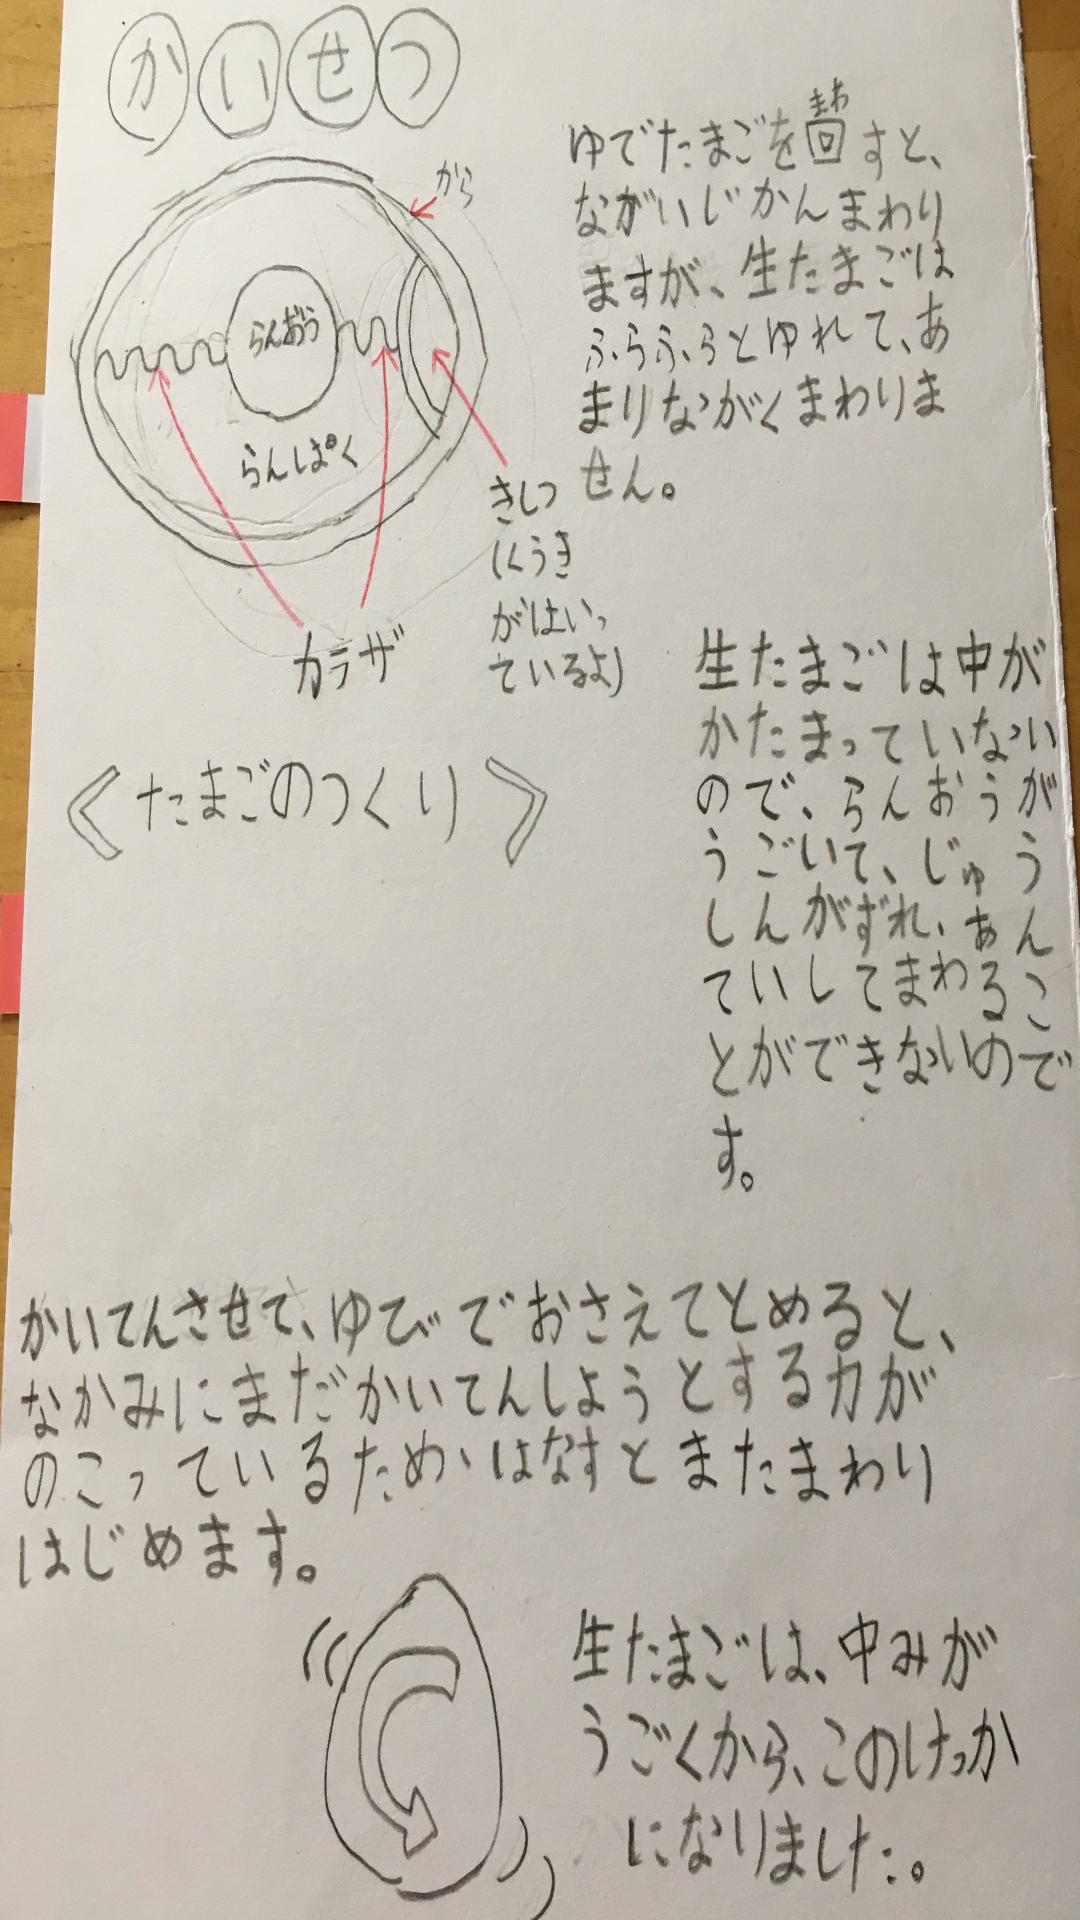 かいせつ
から
らんおう
らんぱく
カラザ
きしつ
(くうき
がはいっ
ているよ)
〈たまごのつくり〉
まわ
ゆでたまごを回すと、
ながいじかんまわり
ますが、生たまごは
ふらふらとゆれて、あ
まりながくまわりま
せん。
生たまごは中が
かたまっていない
ので、らんおうが
うごいて、じゅう
しんがずれ、あん
ていしてまわるこ
とができないので
す。
かいてんさせて、ゆびでおさえてとめると、
なかみにまだかいてんしようとする力が
のこっているため、はなすとまたまわり
はじめます。
生たまごは、中みが
うごくから、このけっか
になりました。